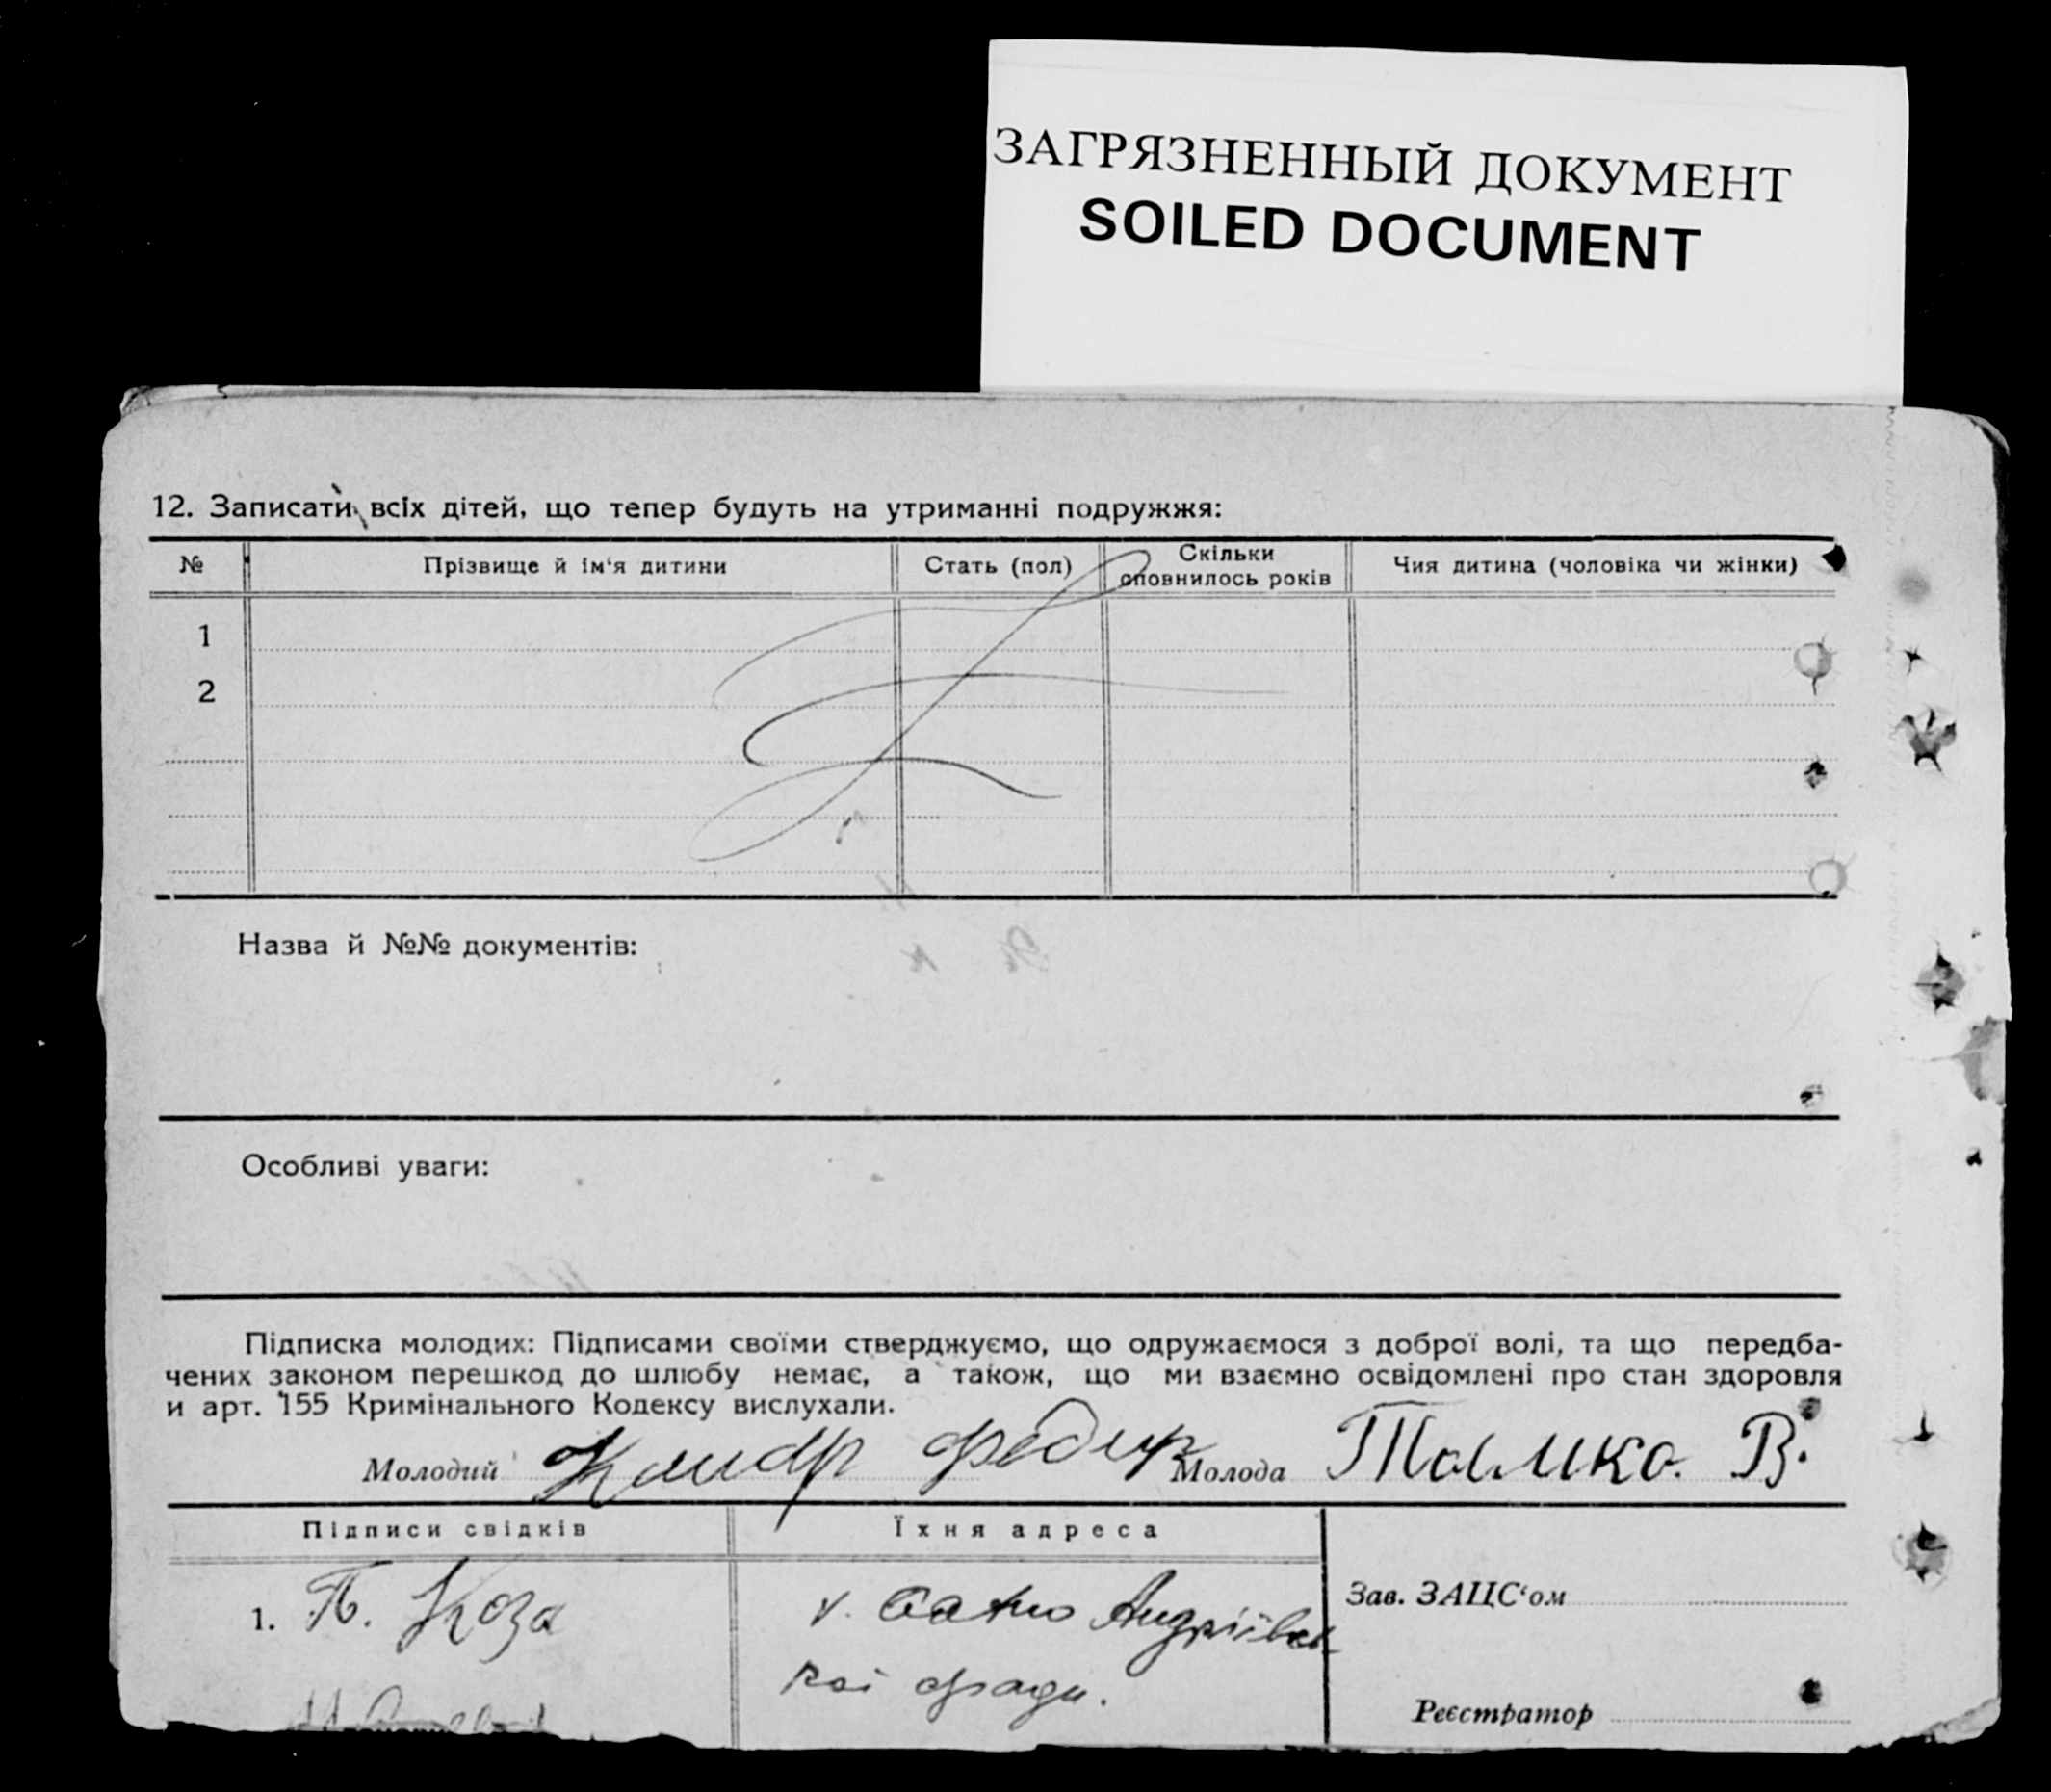 ЗАГРЯЗНЕННЫЙ ДОКУМЕНТ
SOILED DOCUMENT
12. Записати всіх дітей, що тепер будуть на утриманні подружжя:
№ Прізвище й ім‘я дитини Стать (пол) Скільки сповнилось років Чия дитина (чоловіка чи жінки)
1
2
Назва й №№ документів:
Особливі уваги:
Підписка молодих: Підписами своїми стверджуємо, що одружаємося з доброї волі, та що передба-
чених законом перешкод до шлюбу немає, а також, що ми взаємно освідомлені про стан здоровля
и арт. 155 Кримінального Кодексу вислухали.
Молодий Федир Молода В.
Підписи свідків Їхня адреса
1. П. Коза Андріївсь
кої с/ради.
Зав. ЗАЦС‘ом
Реєстратор